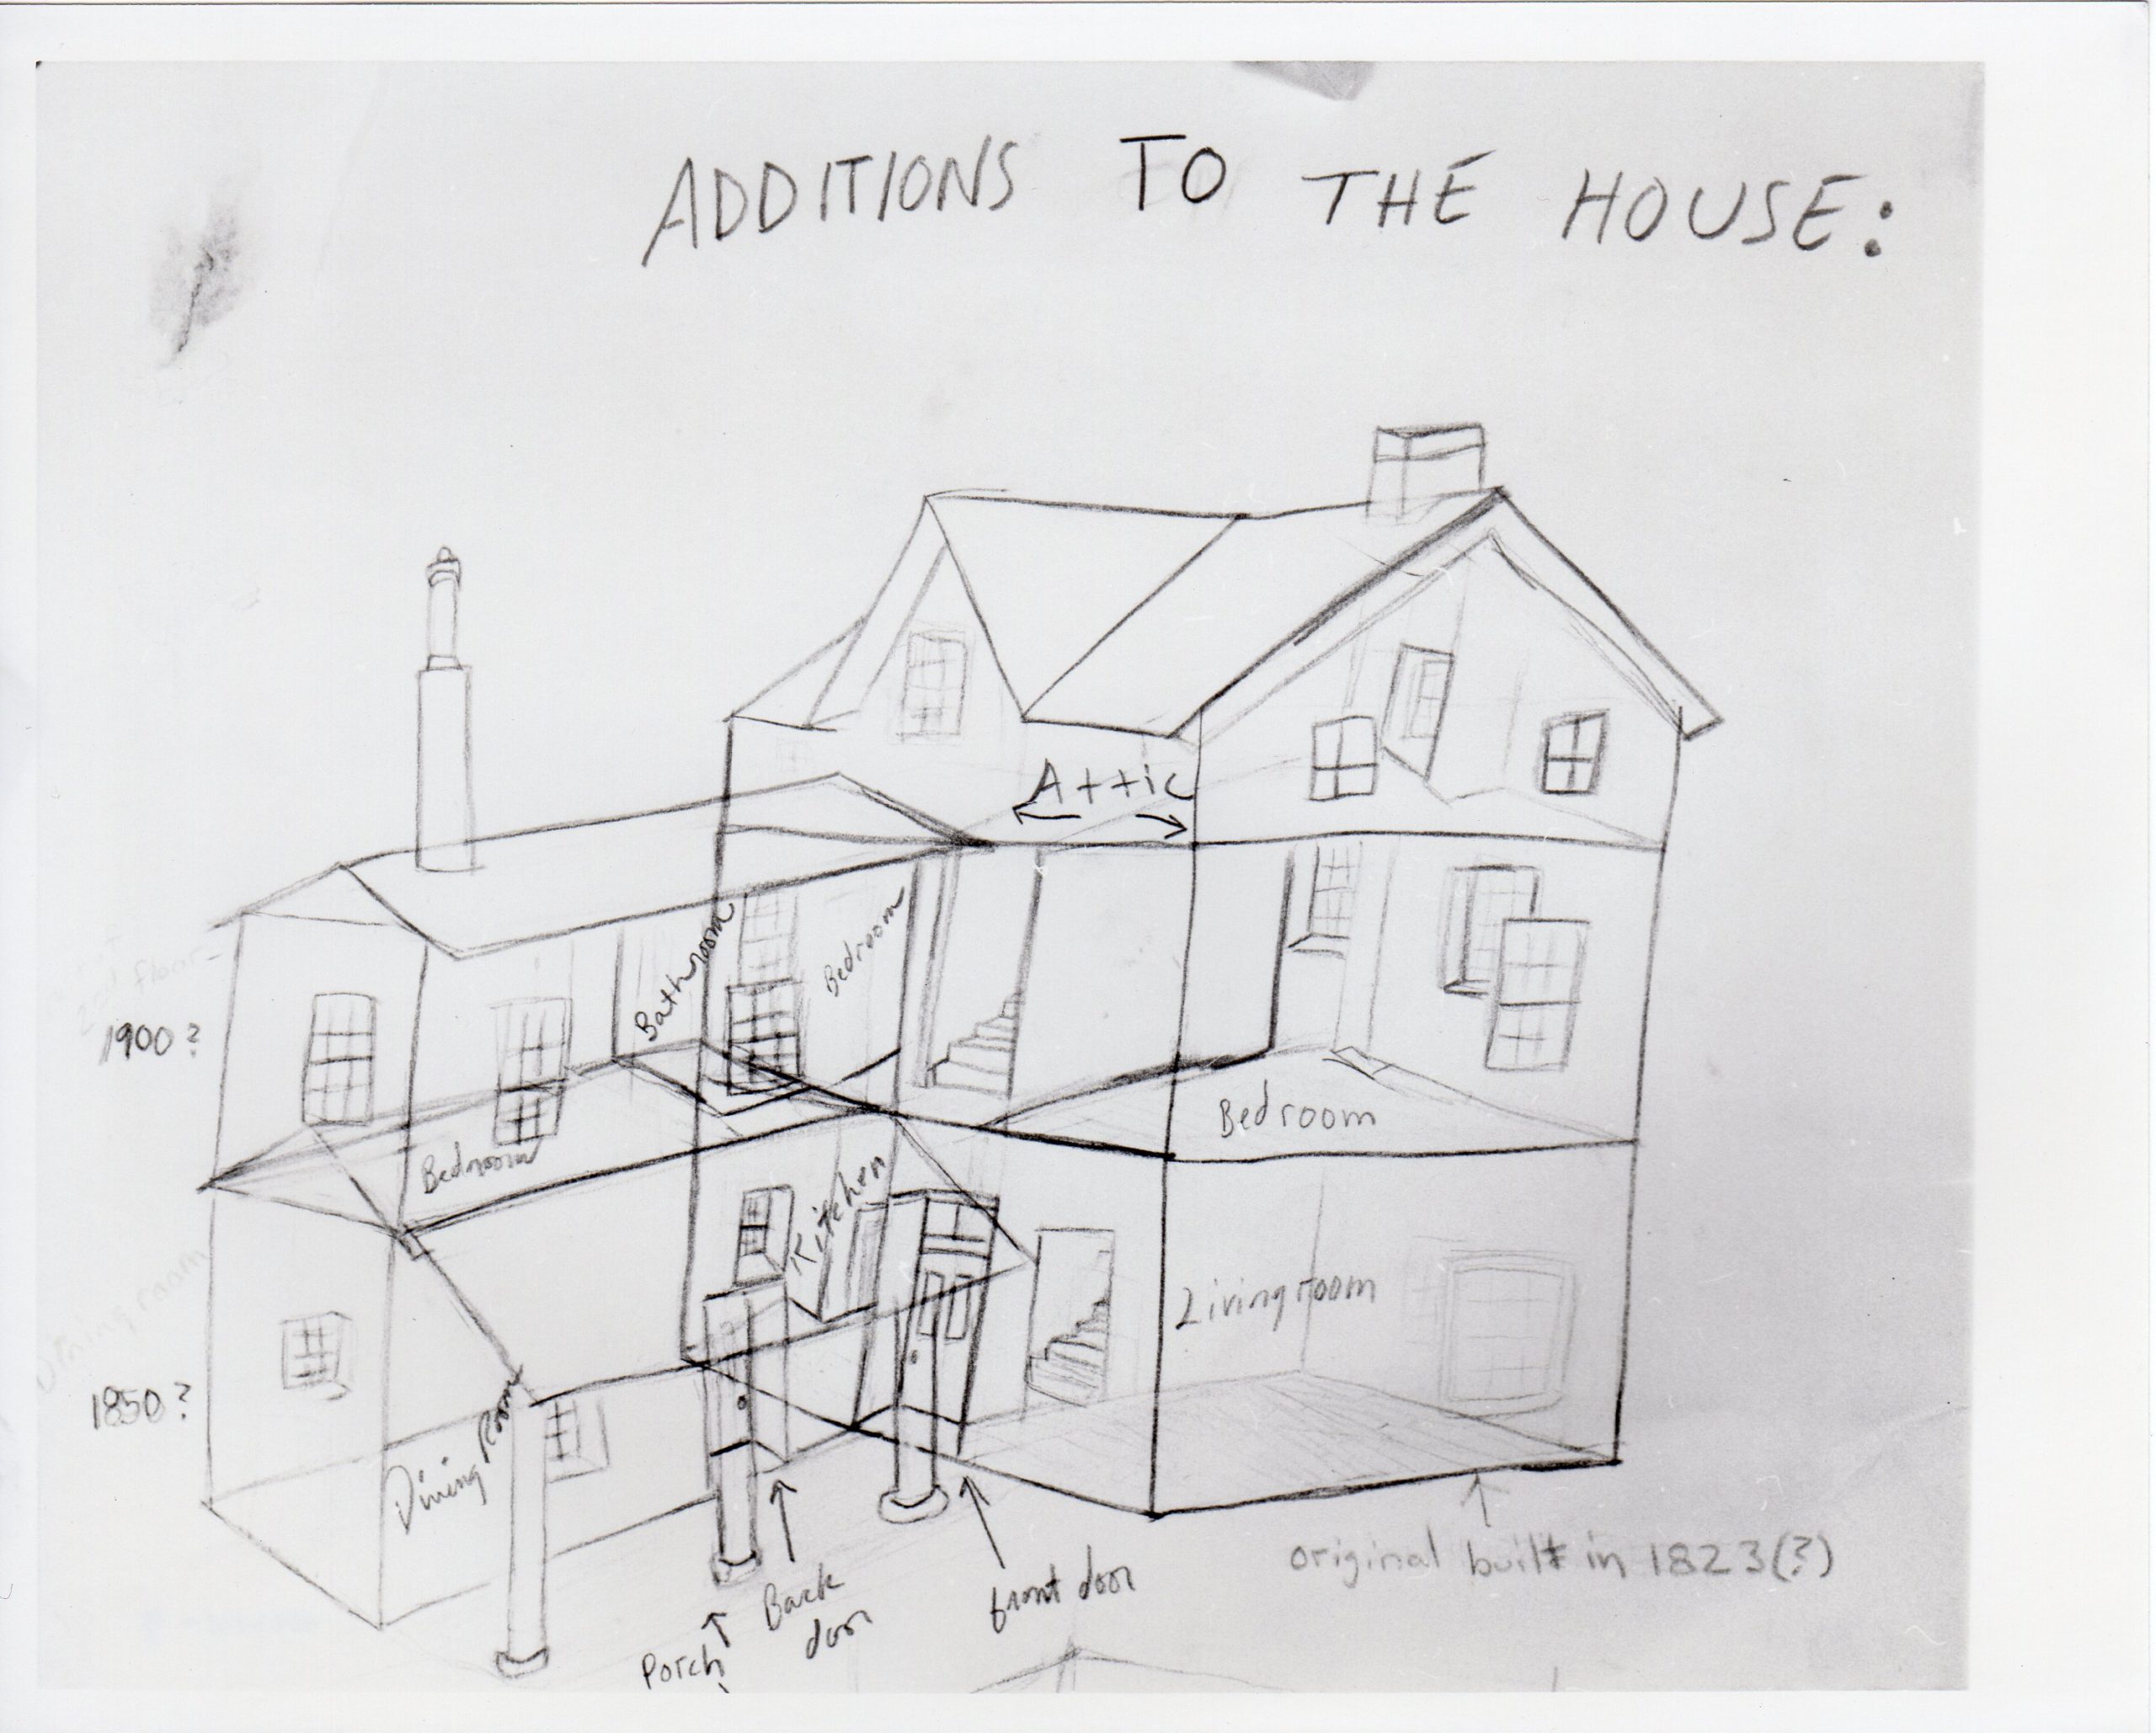 ADDITIONS TO THE HOUSE:
Attic
Bathroom
Bedroom
1900?
Bedroom
Bedroom
Kitchen
Livingroom
Dining room
1850?
Dining Room
original built in 1823(?)
front door
Back
door
Porch